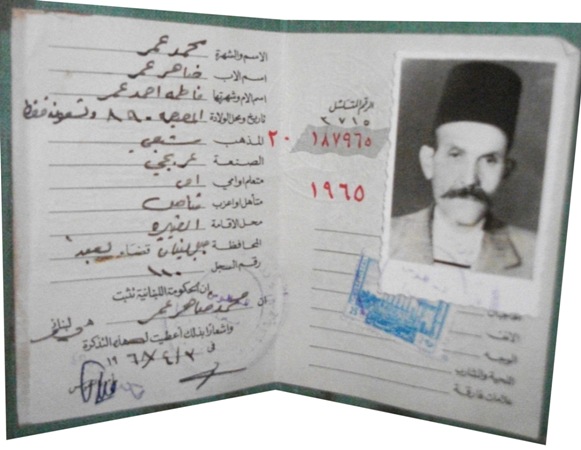 الاسم والشهرة محمد عمر
اسم الاب ضاهر عمر
اسم الام وشهرتها فاطمه احمد عمر
تاريخ ومحل الولادة ٨٩٠ وتسعون فقط
المذهب شيعي
الصنعة عربجي
متعلم او امي امي
متأهل او اعزب متأهل
محل الاقامة
المحافظة جبل لبنان قضاء بعبدا
رقم السجل ١١٠
ان الحكومة اللبنانية تثبت
ان محمد ضاهر عمر هو لبناني
واشعارا بذلك أعطيت لصاحبها التذكرة
في ٣/٤/١٩٦٨
الرقم المتسلسل
٣٧١٥
٢٠ ١٨٧٩٦٥
١٩٦٥
الانف
الوجه
اللحية والشارب
علامات فارقة